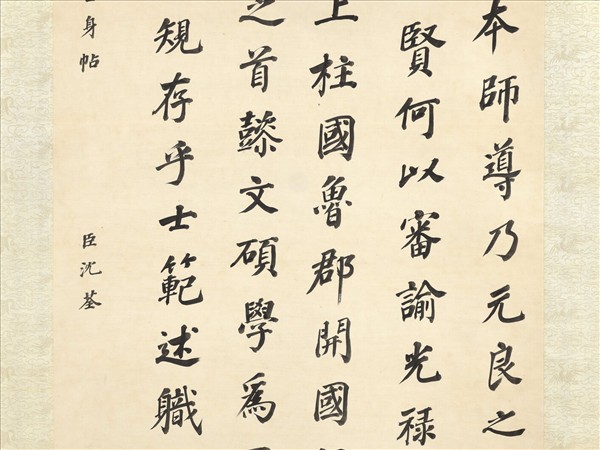 本師導乃元良之
賢何以審諭光祿
上柱國魯郡開國
之首懿文碩學為
規存乎士範述職
身帖
臣沈荃